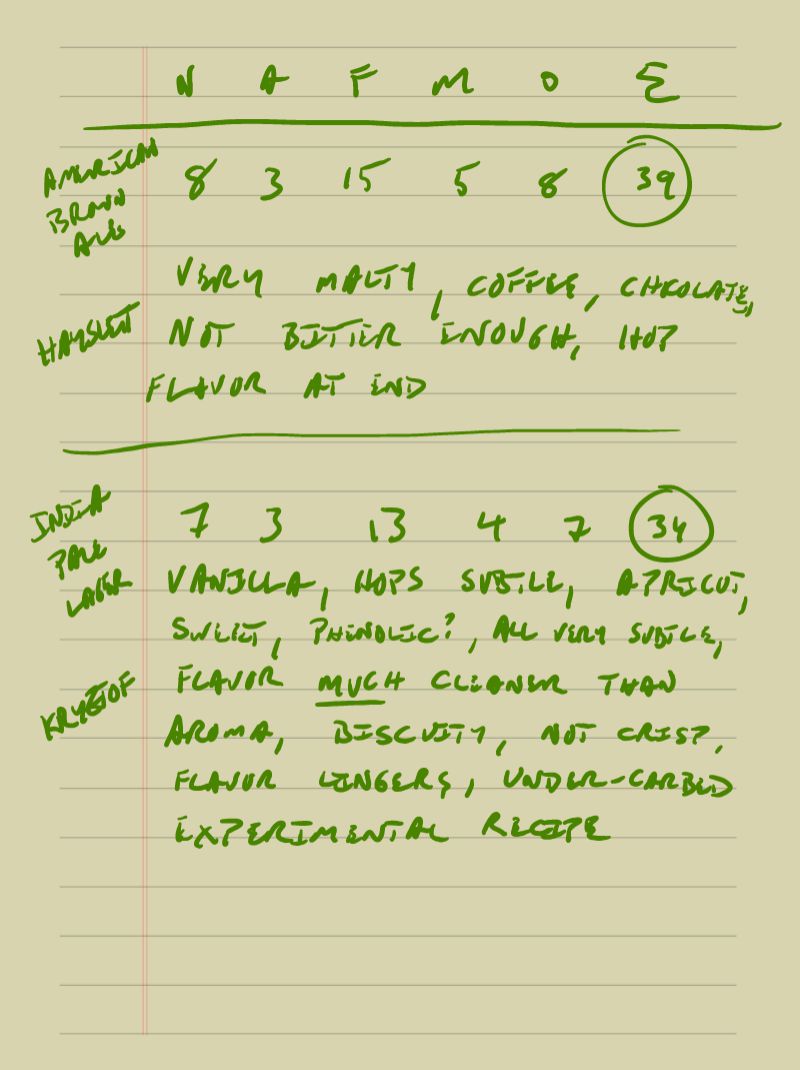 N A F M O Σ
AMERICAN
BROWN
ALE
8 3 15 5 8 39
HAYSLETT
VERY MALTY, COFFEE, CHKOLATE,
NOT BITTER ENOUGH, HOP
FLAVOR AT END
INDIA
PALE
LAGER
7 3 13 4 7 34
KRYZTOF
VANILLA, HOPS SUBTLE, APRICOT,
SWEET, PHENOLIC?, ALL VERY SUBTLE,
FLAVOR MUCH CLEANER THAN
AROMA, BISCUITY, NOT CRISP,
FLAVOR LINGERS, UNDER-CARBED
EXPERIMENTAL RECIPE